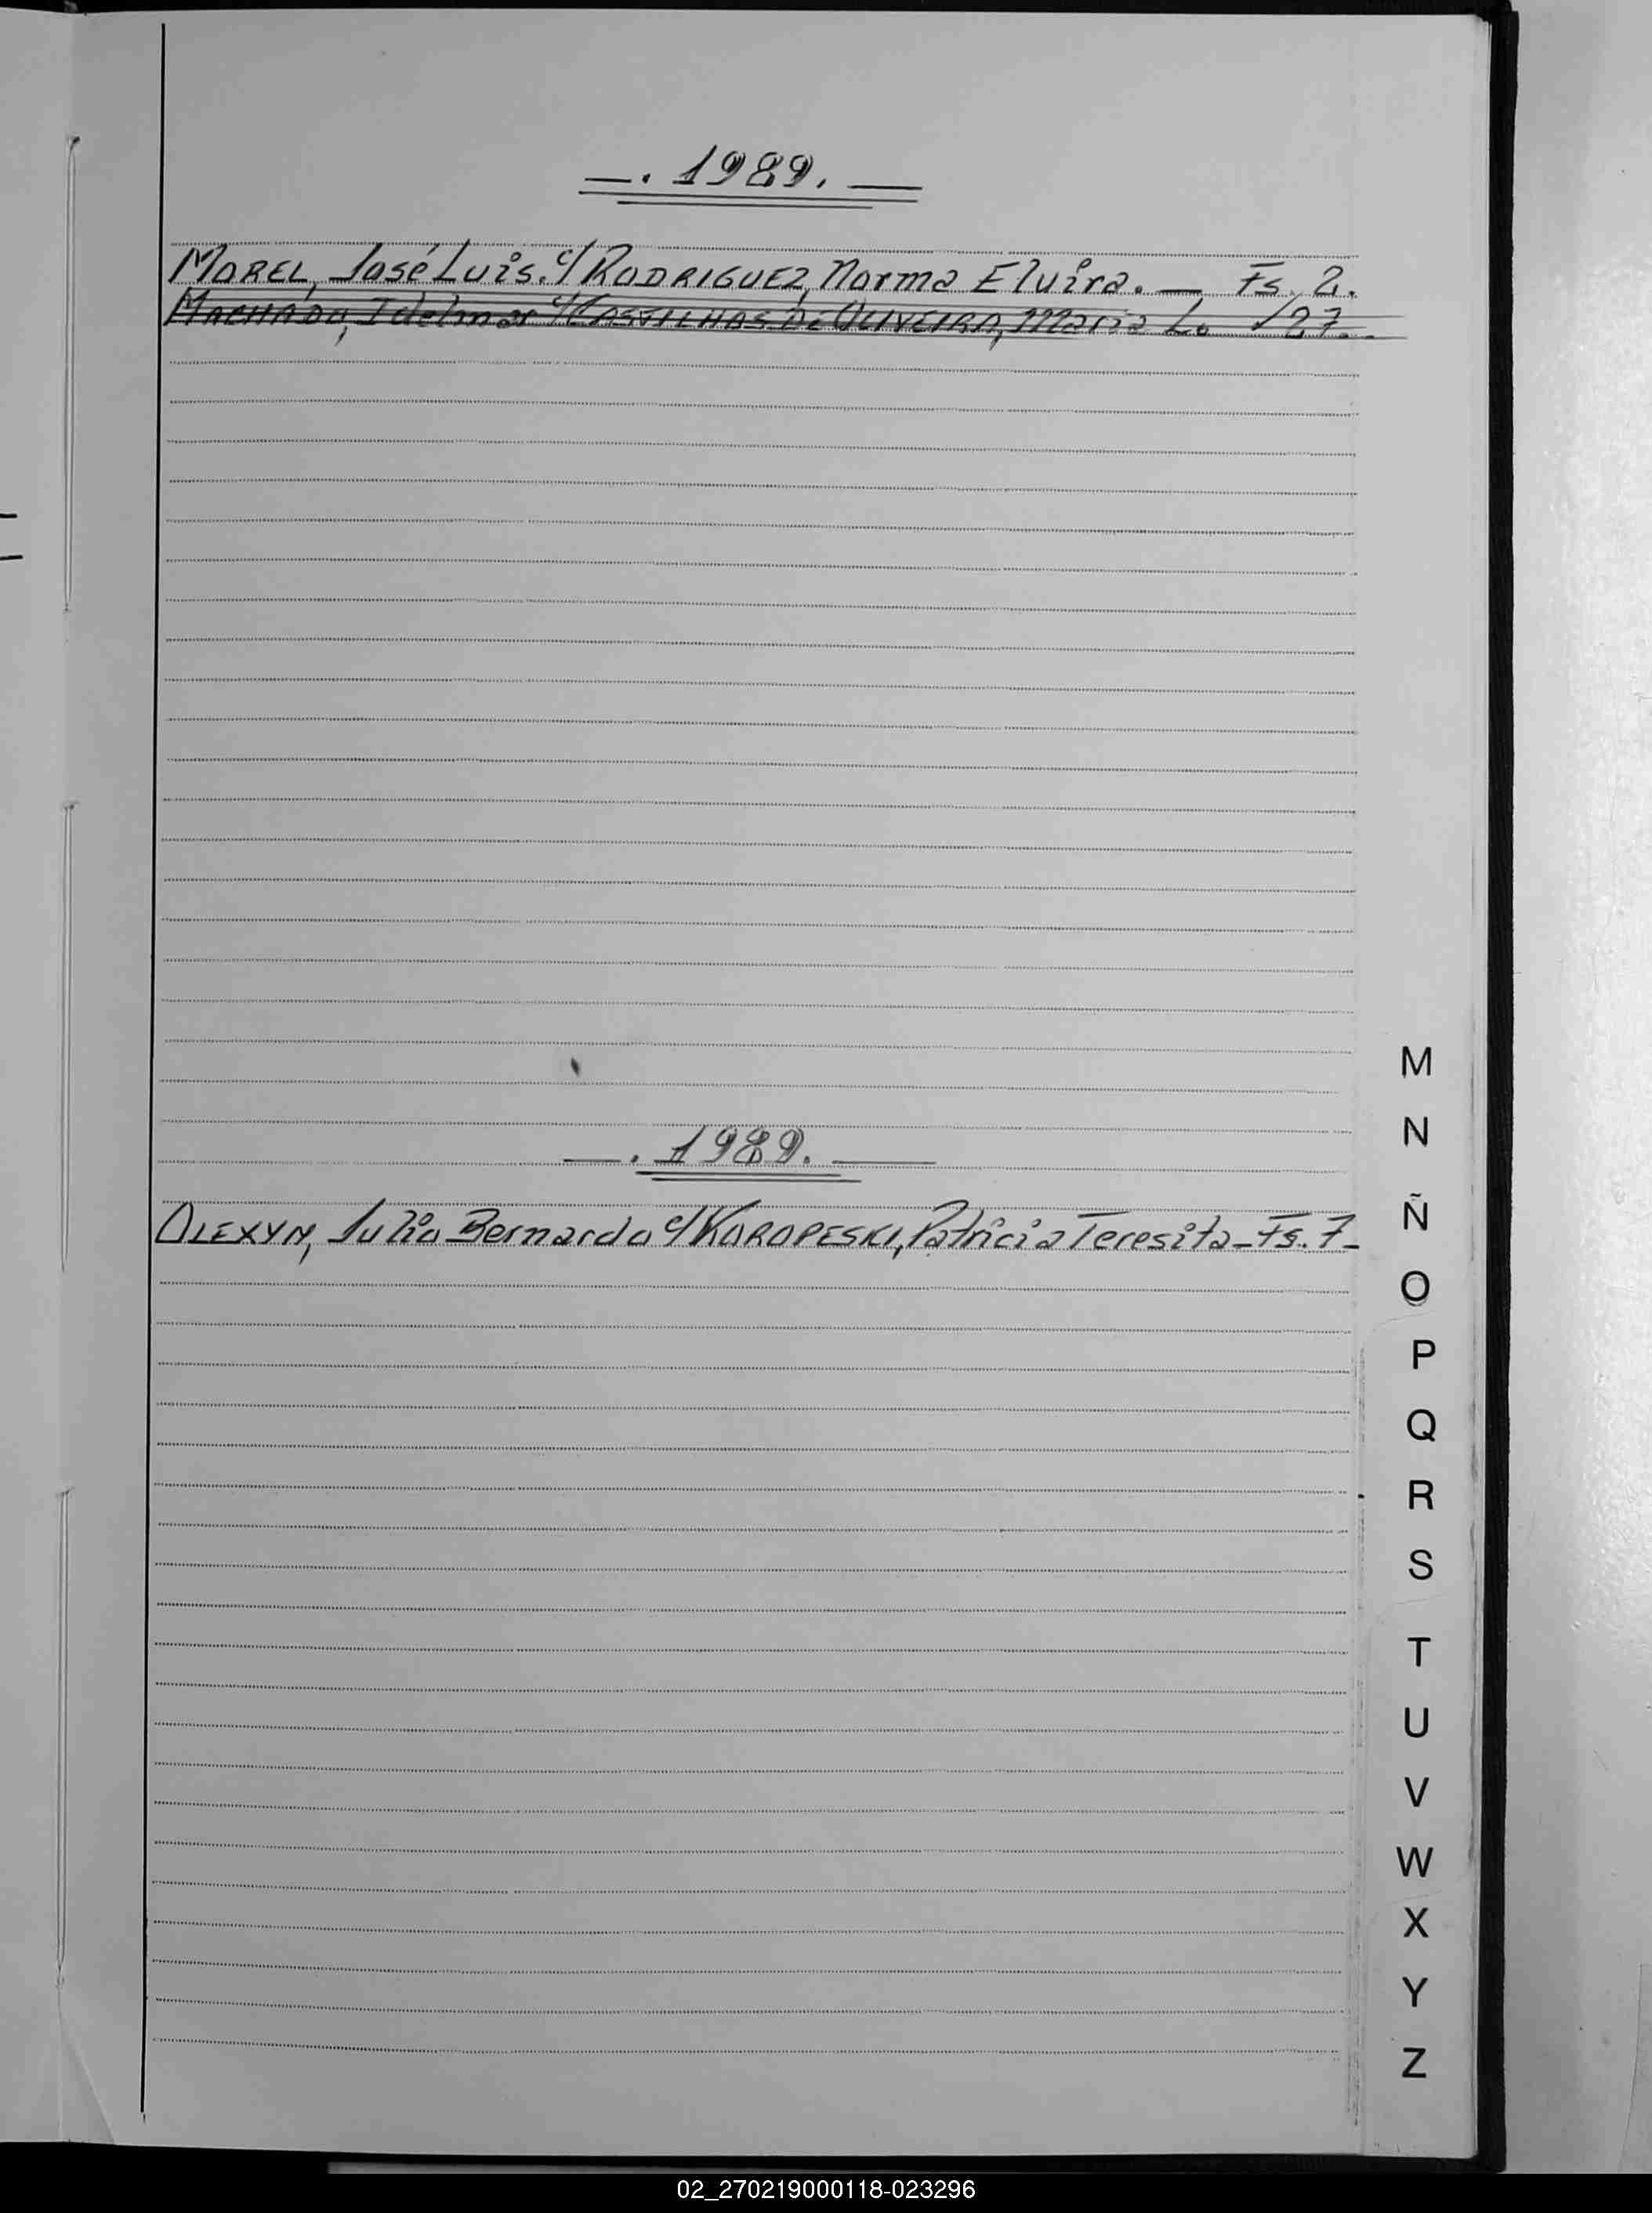 —. 1989. —
MOREL, José Luis. c/ RODRIGUEZ, Norma Elvira. — Fs. 2.
MACHADO, Idelmar c/ CASTILHOS DE OLIVEIRA, Maria L. 27.
—. 1989. —
OLEXYN, Julio Bernardo c/ KOROPESKI, Patricia Teresita - Fs. 7 -
M
N
Ñ
O
P
Q
R
S
T
U
V
W
X
Y
Z
02_270219000118-023296